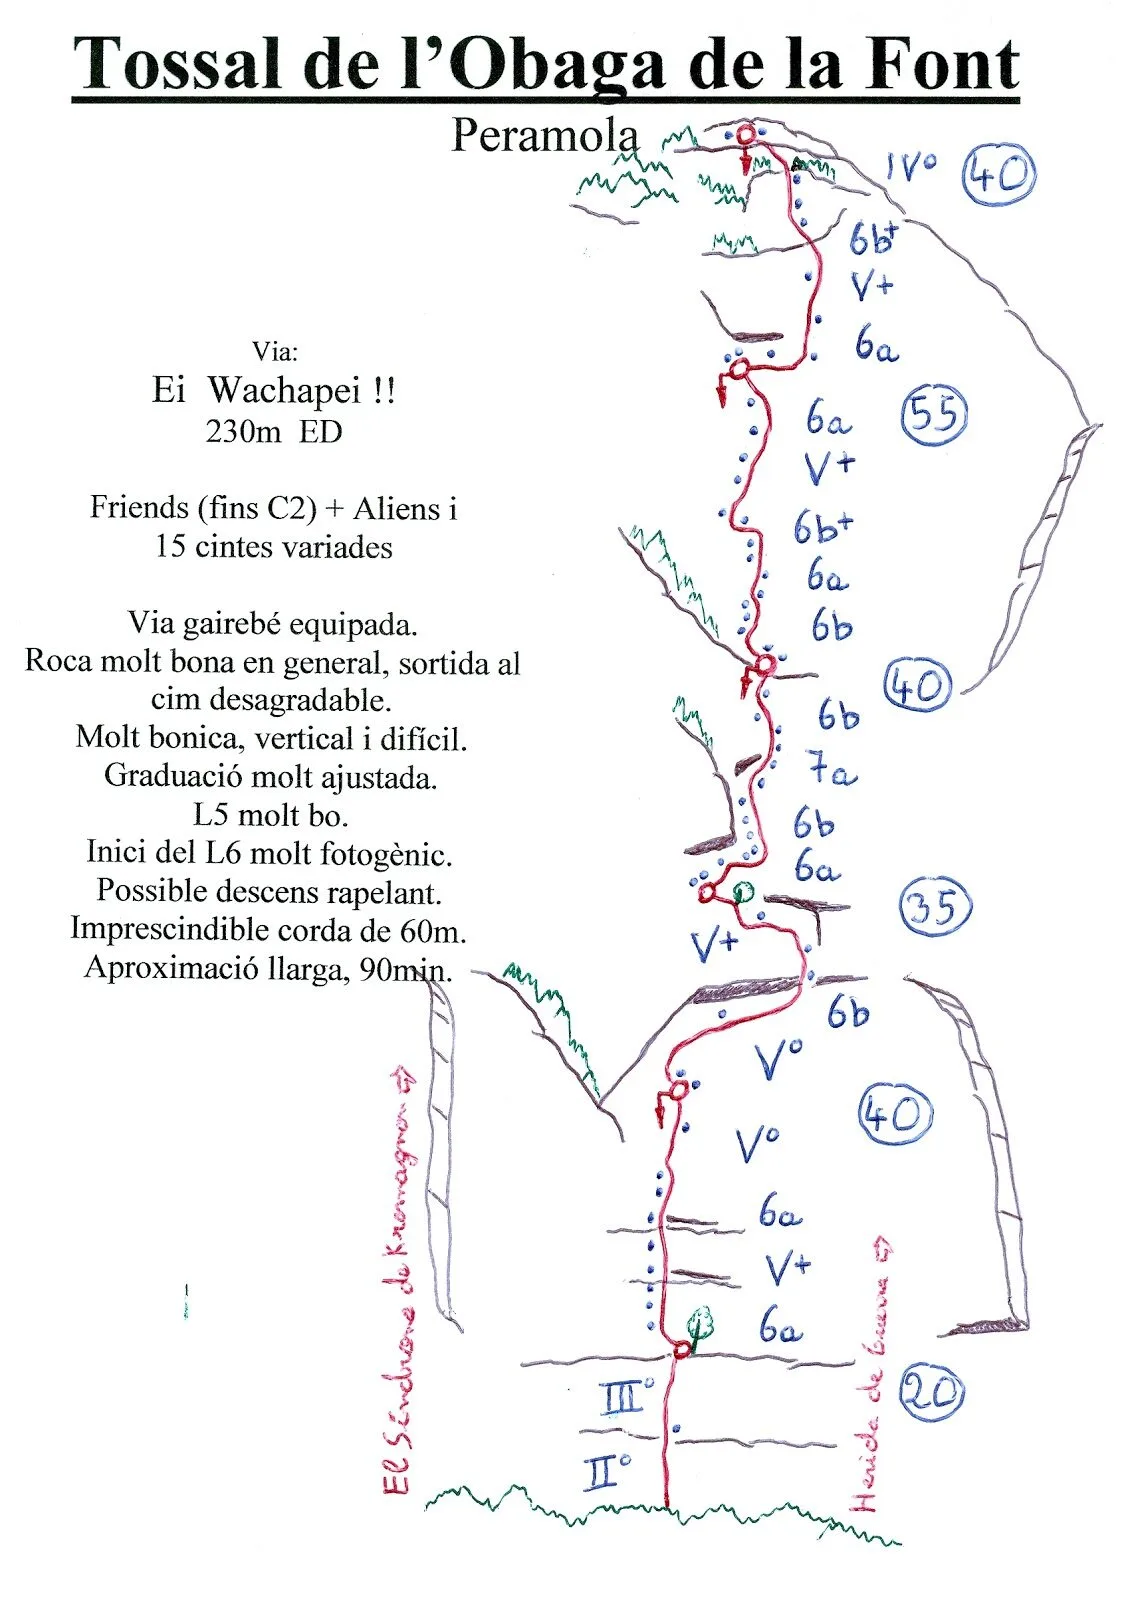 Tossal de l'Obaga de la Font
Peramola
IVº 40
6b+
V+
6a
Via:
Ei Wachapei !!
230m ED
55
6a
V+
Friends (fins C2) + Aliens i
15 cintes variades
6b+
6a
6b
Via gairebé equipada.
Roca molt bona en general, sortida al
cim desagradable.
Molt bonica, vertical i difícil.
Graduació molt ajustada.
L5 molt bo.
Inici del L6 molt fotogènic.
Possible descens rapelant.
Imprescindible corda de 60m.
Aproximació llarga, 90min.
40
6b
7a
6b
6a
35
V+
6b
Vº
40
Vº
6a
V+
6a
El Síndrome de Kromagnon ⇨
Herida de Guerra ⇨
20
IIIº
IIº